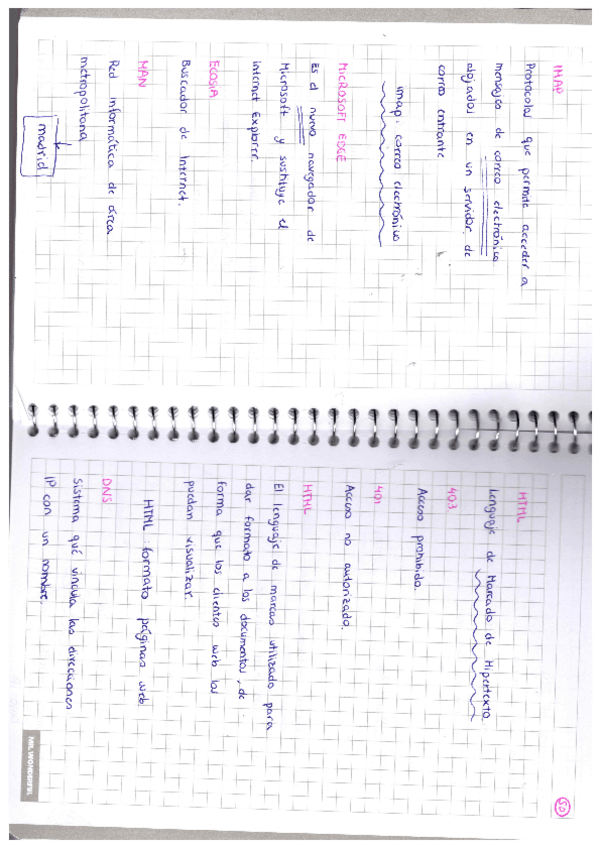 IMAP
Protocolos que permite acceder a
mensajes de correo electrónico
alojados en un servidor de
correo entrante
imap: correo electrónico
MICROSOFT EDGE
Es el nuevo navegador de
Microsoft y sustituye el
internet Explorer.
ECOSIA
Buscador de Internet.
MAN
Red informática de área
metropolitana
madrid
HTML
Lenguaje de Marcado de Hipertexto
403
Acceso prohibido.
401
Acceso no autorizado.
HTML
El lenguaje de marcas utilizado para
dar formato a los documentos, de
forma que los clientes web los
puedan visualizar.
HTML: formato páginas web
DNS
Sistema qué vincula las direcciones
IP con un nombre.
50
MR. WONDERFUL